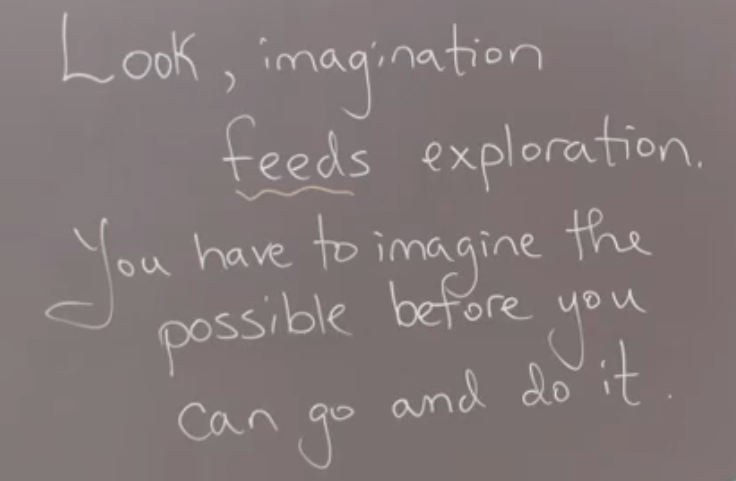 Look, imagination
feeds exploration.
You have to imagine the
possible before you
can go and do it.